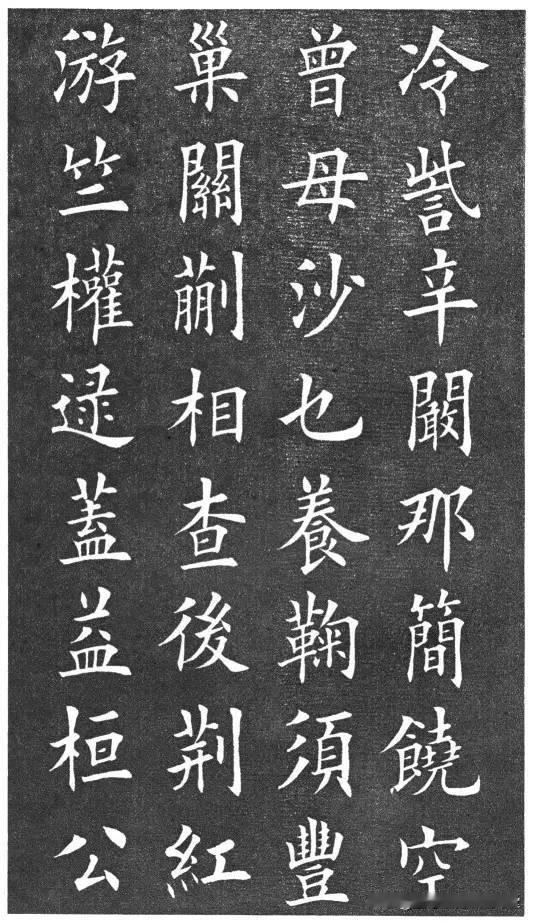 冷訾辛闞那簡饒空
曾毋沙乜養鞠須豐
巢關蒯相查後荆紅
游竺權逯蓋益桓公